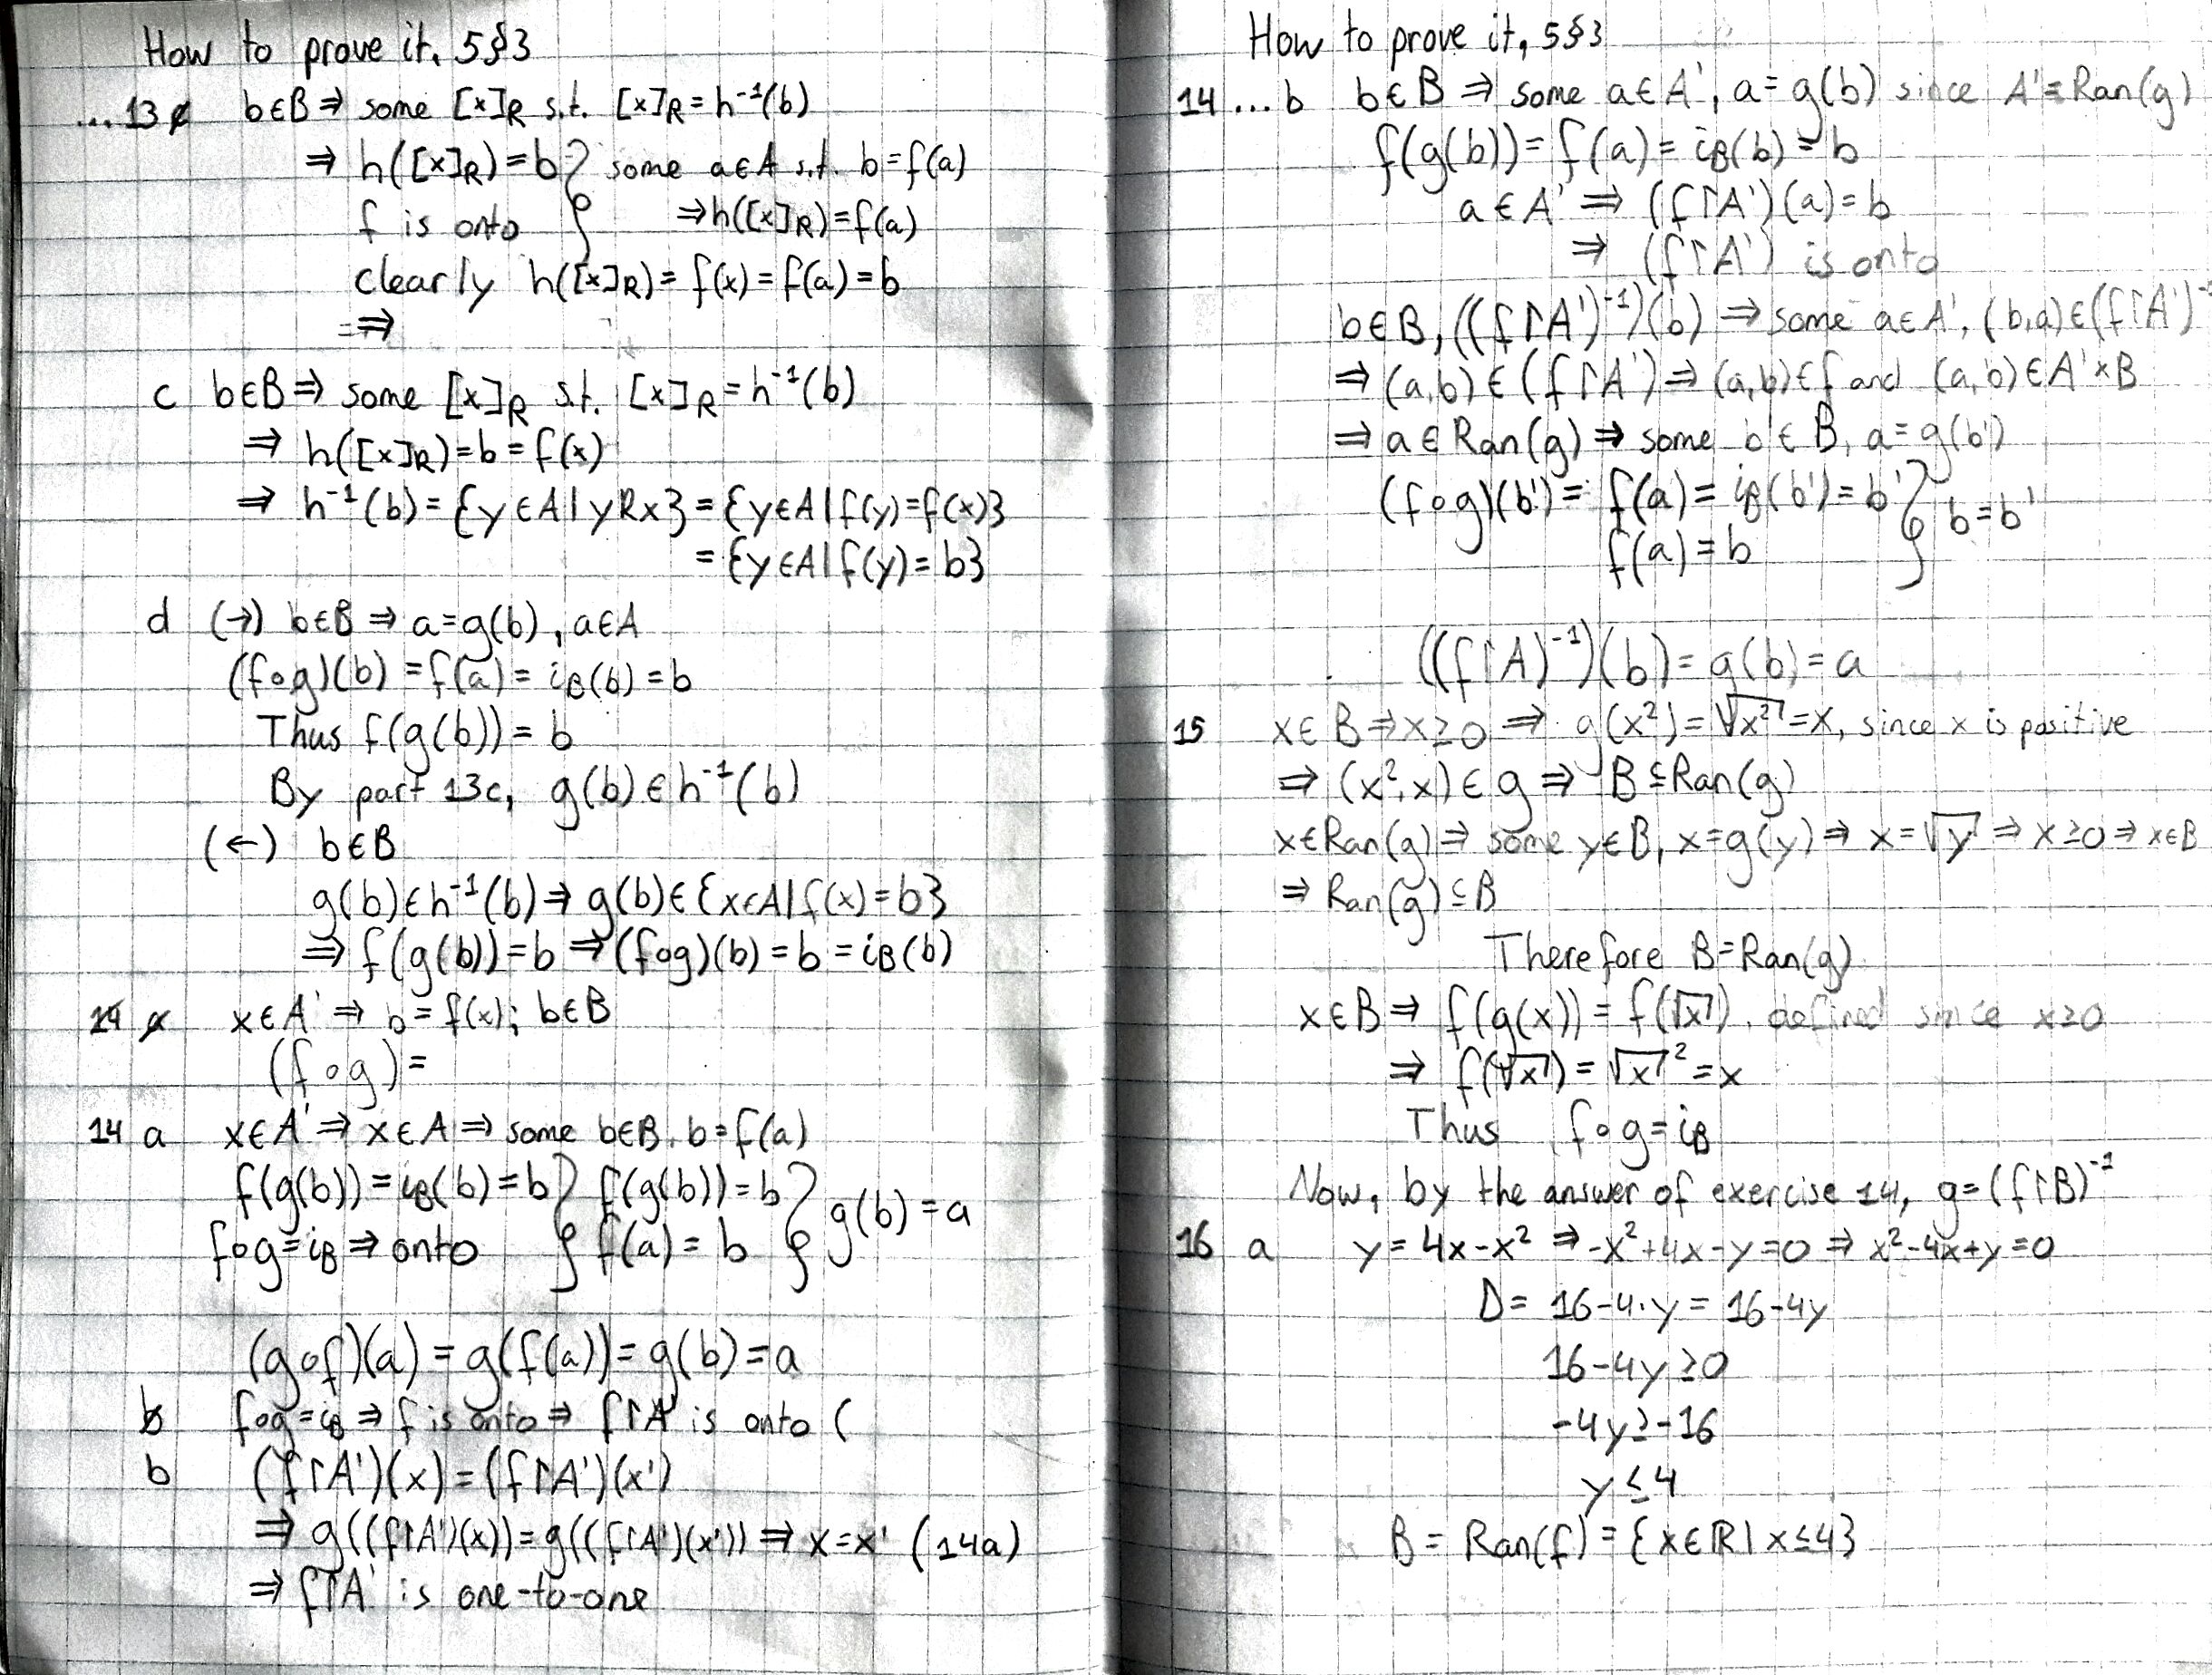 How to prove it, 5§3
...13 c b∈B ⇒ some [x]R s.t. [x]R = h⁻¹(b)
⇒ h([x]R) = b } some a∈A s.t. b = f(a)
f is onto } ⇒ h([x]R) = f(a)
clearly h([x]R) = f(x) = f(a) = b
=⇒
c b∈B ⇒ some [x]R s.t. [x]R = h⁻¹(b)
⇒ h([x]R) = b = f(x)
⇒ h⁻¹(b) = {y∈A | yRx} = {y∈A | f(y) = f(x)}
= {y∈A | f(y) = b}
d (→) b∈B ⇒ a = g(b), a∈A
(f∘g)(b) = f(a) = iB(b) = b
Thus f(g(b)) = b
By part 13c, g(b) ∈ h⁻¹(b)
(←) b∈B
g(b) ∈ h⁻¹(b) ⇒ g(b) ∈ {x∈A | f(x) = b}
⇒ f(g(b)) = b ⇒ (f∘g)(b) = b = iB(b)
14 a x∈A' ⇒ b = f(x); b∈B
(f∘g) =
14 a x∈A' ⇒ x∈A ⇒ some b∈B, b = f(a)
f(g(b)) = iB(b) = b } f(g(b)) = b } g(b) = a
f∘g = iB ⇒ onto } f(a) = b }
(g∘f)(a) = g(f(a)) = g(b) = a
b f∘g = iB ⇒ f is onto ⇒ f↾A' is onto (
b (f↾A')(x) = (f↾A')(x')
⇒ g((f↾A')(x)) = g((f↾A')(x')) ⇒ x = x' (14a)
⇒ f↾A' is one-to-one
How to prove it, 5§3
14 ... b b∈B ⇒ some a∈A', a = g(b) since A' = Ran(g)
f(g(b)) = f(a) = iB(b) = b
a∈A' ⇒ (f↾A')(a) = b
⇒ (f↾A') is onto
b∈B, ((f↾A')⁻¹)(b) ⇒ some a∈A', (b,a)∈(f↾A')⁻¹
⇒ (a,b) ∈ (f↾A') ⇒ (a,b)∈f and (a,b)∈A'×B
⇒ a∈Ran(g) ⇒ some b'∈B, a = g(b')
(f∘g)(b') = f(a) = iB(b') = b' } b = b'
f(a) = b }
((f↾A)⁻¹)(b) = g(b) = a
15 x∈B ⇒ x≥0 ⇒ g(x²) = √x² = x, since x is positive
⇒ (x², x) ∈ g ⇒ B⊆Ran(g)
x∈Ran(g) ⇒ some y∈B, x = g(y) ⇒ x = √y ⇒ x≥0 ⇒ x∈B
⇒ Ran(g)⊆B
Therefore B = Ran(g)
x∈B ⇒ f(g(x)) = f(√x), defined since x≥0
⇒ f(√x) = √x² = x
Thus f∘g = iB
Now, by the answer of exercise 14, g = (f↾B)⁻¹
16 a y = 4x-x² ⇒ -x²+4x-y = 0 ⇒ x²-4x+y = 0
D = 16-4·y = 16-4y
16-4y ≥ 0
-4y ≥ -16
y ≤ 4
B = Ran(f) = {x∈ℝ | x≤4}